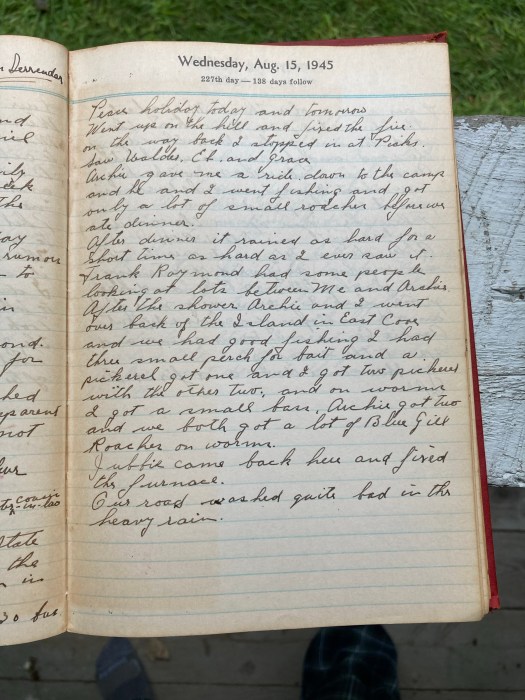 Surrender
nd
ily
the
day
rumor
to
in
ond.
for
hed
apparent
not
cousin
in-law
State
the
in
30 bus
Wednesday, Aug. 15, 1945
227th day — 138 days follow
Peace holiday today and tomorrow
Went up on the hill and fixed the fire
on the way back I stopped in at Peaks.
Saw Waldo, Eh. and Grace
Archie gave me a ride down to the camp
and he and I went fishing and got
only a lot of small roaches before we
ate dinner.
After dinner it rained as hard for a
short time as hard as I ever saw it.
Frank Raymond had some people
looking at lots between Me and Archie.
After the shower Archie and I went
over back of the Island in East Cove
and we had good fishing I had
three small perch for bait and a
pickerel got one and I got two pickerel
with the other two, and on worms
I got a small bass, Archie got two
and we both got a lot of Blue Gill
Roaches on worms.
Tubbie came back here and fixed
the furnace.
Our road washed quite bad in the
heavy rain.